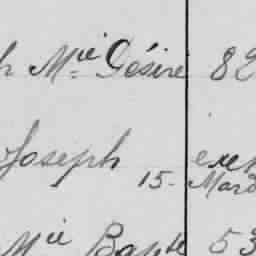 Mie Désiré 82
Joseph
15 - Mard
Mie Bapte 53